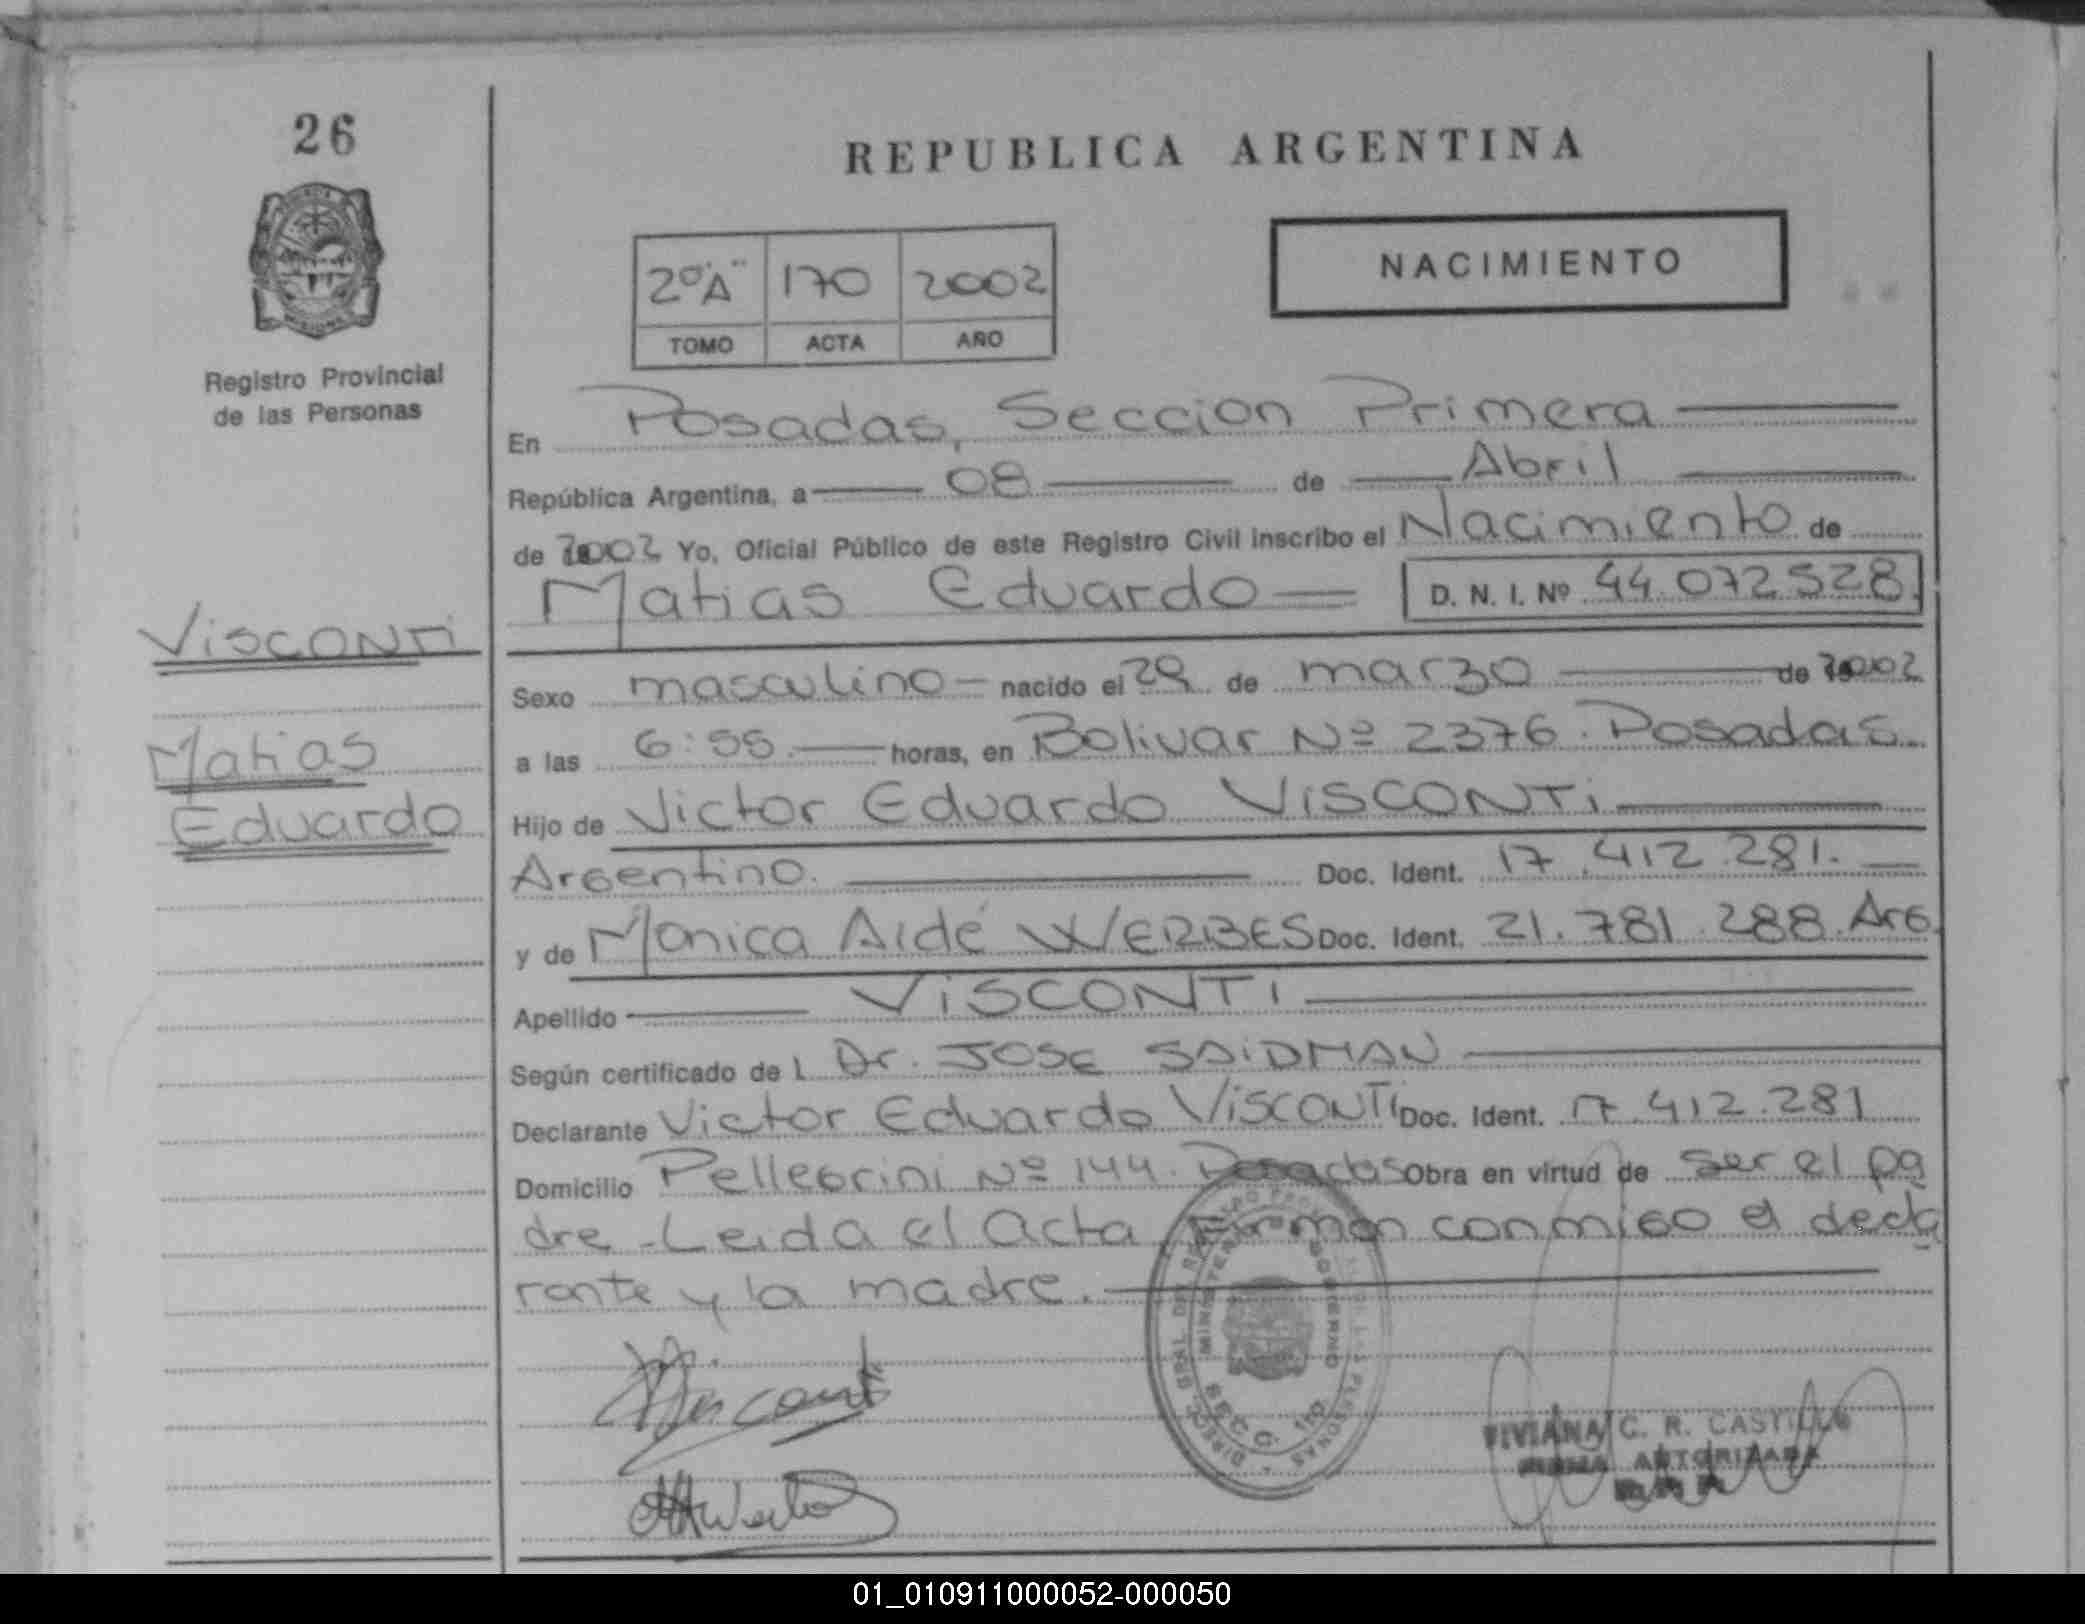 26
REPUBLICA ARGENTINA
2º"A" 170 2002
TOMO ACTA AÑO
NACIMIENTO
Registro Provincial
de las Personas
En Posadas, Seccion Primera
República Argentina, a 08 de Abril
de 2002 Yo, Oficial Público de este Registro Civil inscribo el Nacimiento de
Matias Eduardo D. N. I. Nº 44.072.528
VISCONTI
Matias
Eduardo
Sexo masculino nacido el 29 de marzo de 2002
a las 6:55 horas, en Bolivar Nº 2376. Posadas.
Hijo de Victor Eduardo VISCONTI
Argentino. Doc. Ident. 17.412.281.
y de Monica Aidé WERBES Doc. Ident. 21.781.288. Arg.
Apellido VISCONTI
Según certificado de l Dr. JOSE SAIDMAN
Declarante Victor Eduardo VISCONTI Doc. Ident. 17.412.281
Domicilio Pellegrini Nº 144. Posadas Obra en virtud de ser el pa
dre. Leida el Acta, Firman conmigo el decla
rante y la madre.
MINISTERIO GOBIERNO
SECC. 1ra
VIVIANA C. R. CASTILLO
AUTORIZADA
01_010911000052-000050